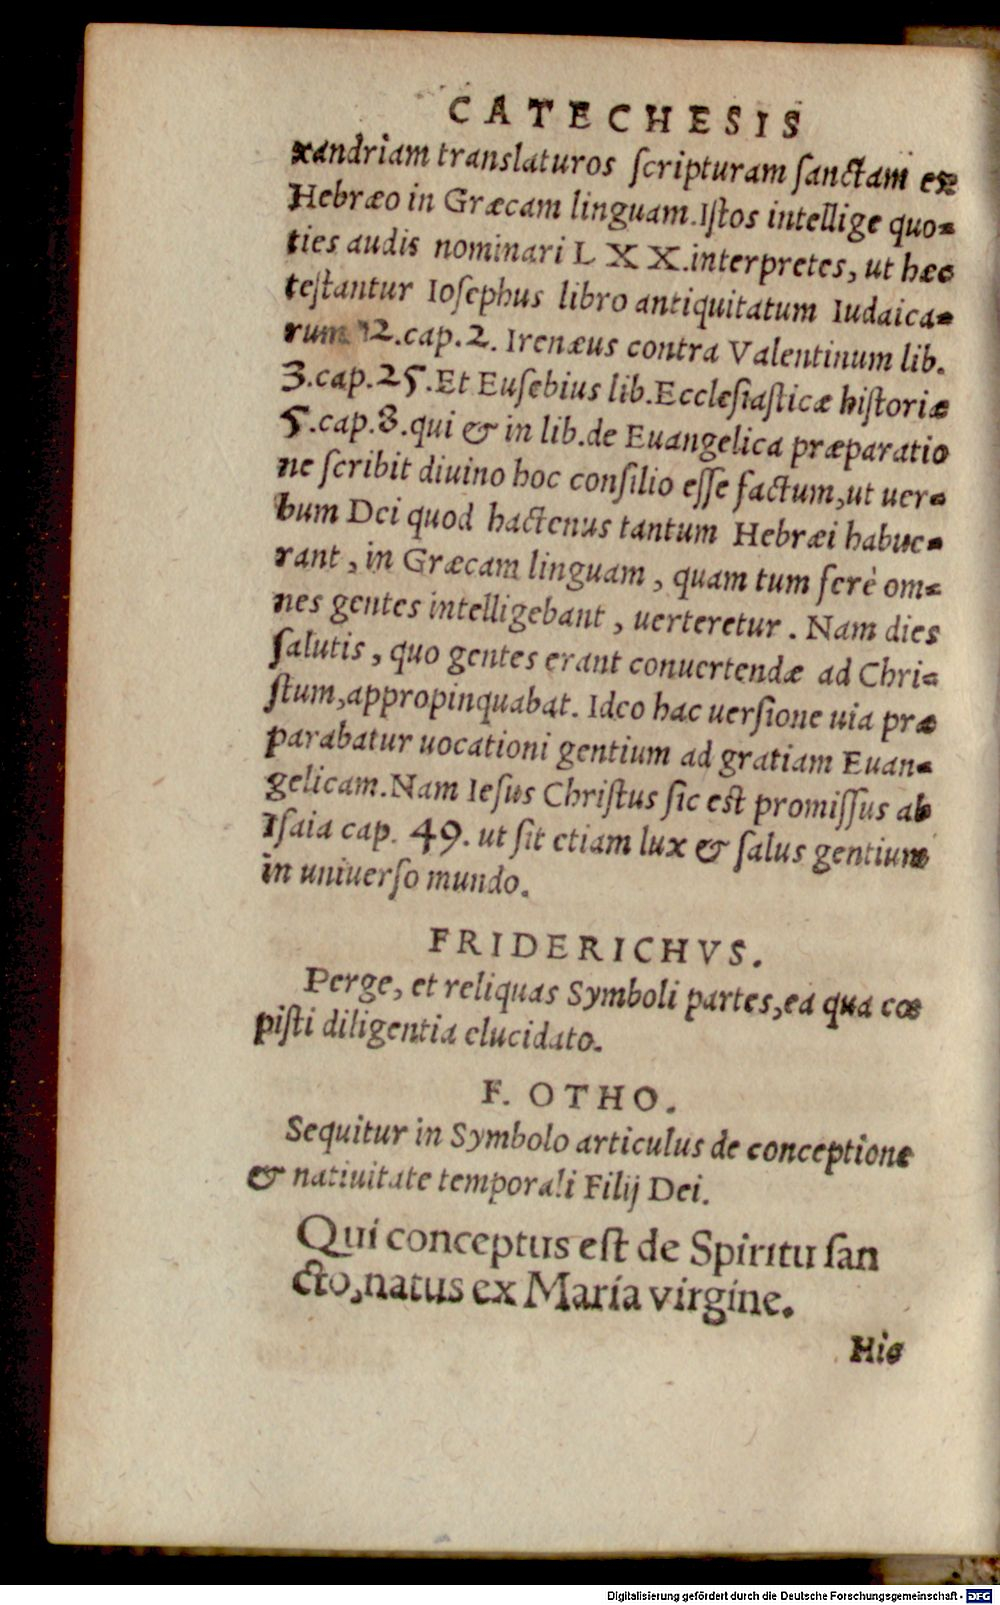 CATECHESIS
xandriam translaturos ſcripturam ſanctam ex
Hebræo in Græcam linguam. Iſtos intellige quo-
ties audis nominari LXX. interpretes, ut hæc
teſtantur Ioſephus libro antiquitatum Iudaica-
rum 12. cap. 2. Irenæus contra Valentinum lib.
3. cap. 25. Et Euſebius lib. Eccleſiaſticæ hiſtoriæ
5. cap. 8. qui & in lib. de Euangelica præparatio
ne ſcribit diuino hoc conſilio eſſe factum, ut uer-
bum Dei quod hactenus tantum Hebræi habue-
rant, in Græcam linguam, quam tum ferè om-
nes gentes intelligebant, uerteretur. Nam dies
ſalutis, quo gentes erant conuertendæ ad Chri-
ſtum, appropinquabat. Ideo hac uerſione uia præ
parabatur uocationi gentium ad gratiam Euan-
gelicam. Nam Ieſus Chriſtus ſic eſt promiſſus ab
Iſaia cap. 49. ut ſit etiam lux & ſalus gentium
in uniuerſo mundo.
FRIDERICHVS.
Perge, et reliquas Symboli partes, ea qua cœ
piſti diligentia elucidato.
F. OTHO.
Sequitur in Symbolo articulus de conceptione
& natiuitate temporali Filij Dei.
Qui conceptus eſt de Spiritu ſan
cto, natus ex Maria virgine.
Hic
Digitalisierung gefördert durch die Deutsche Forschungsgemeinschaft - DFG